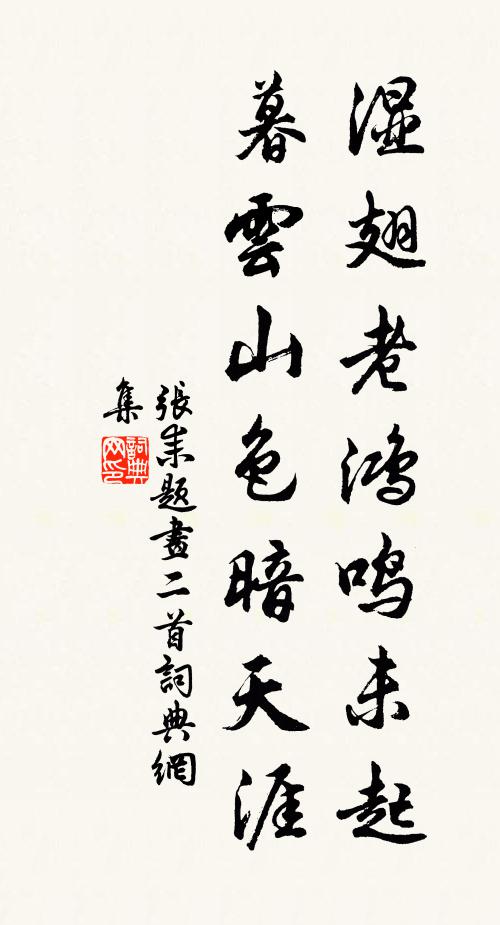 湿翅老鸿鸣未起
暮雲山色暗天涯
張耒題畫二首詞典網
集
詞典
网印